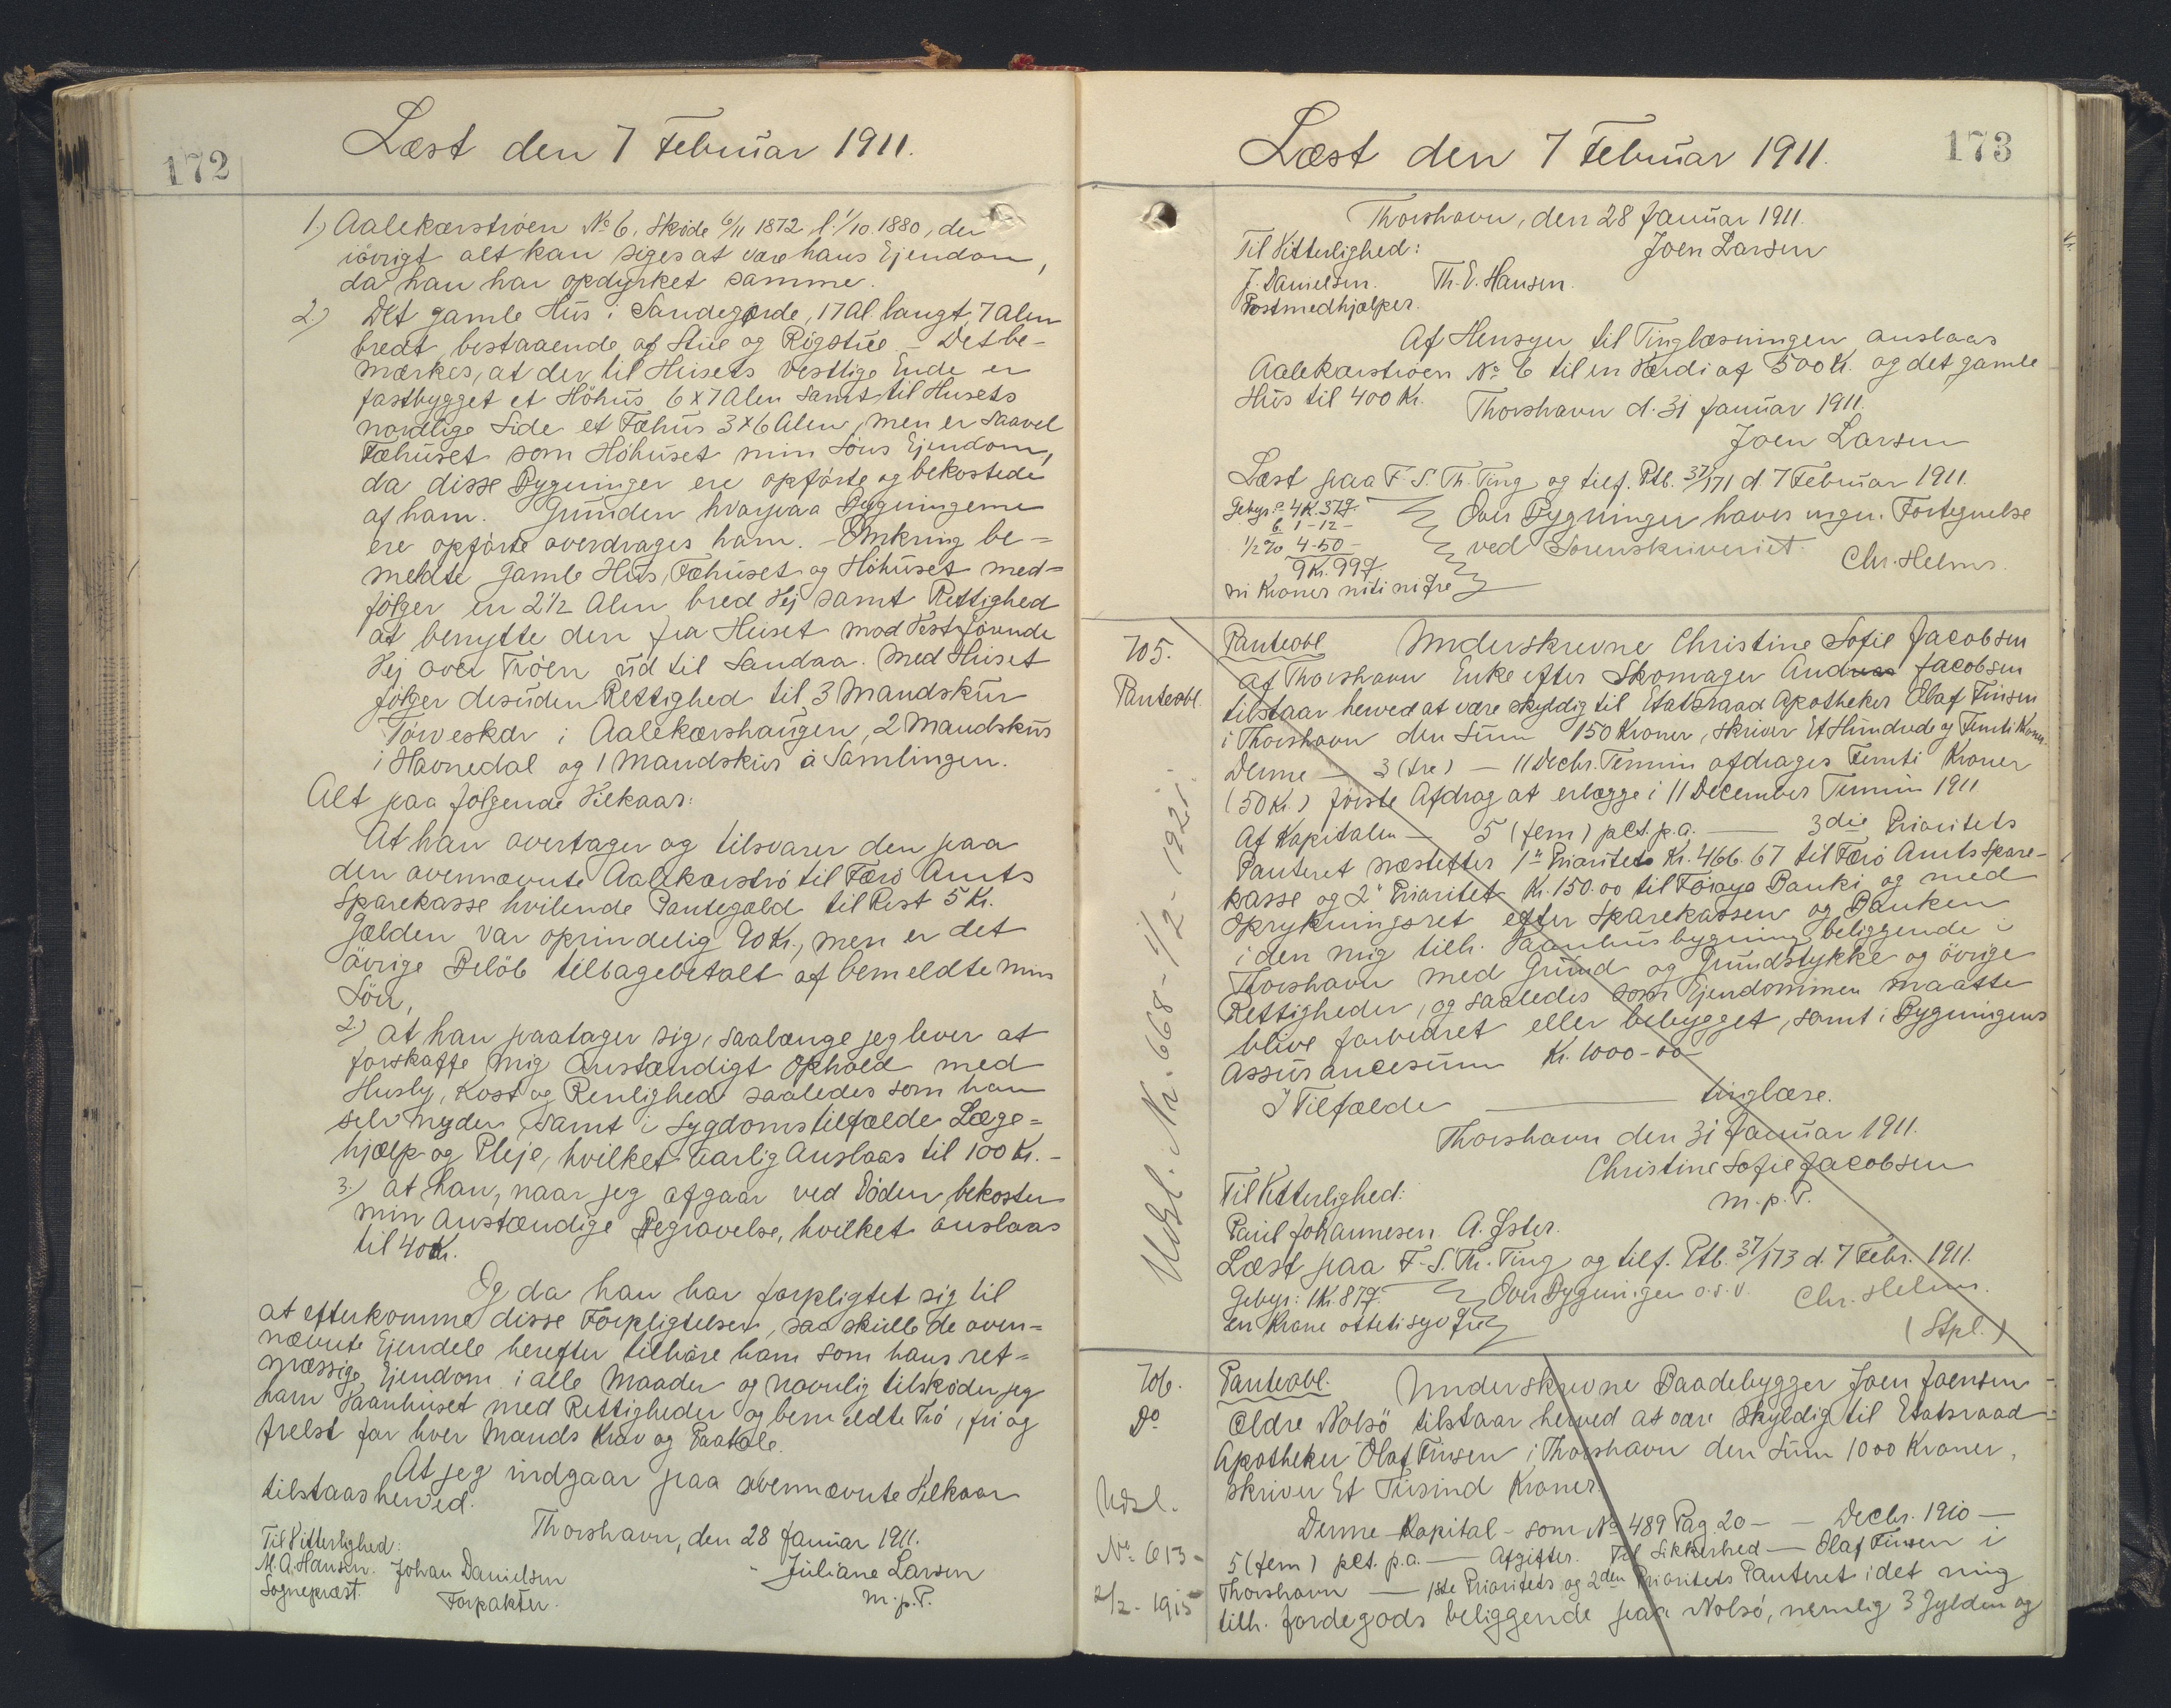 172
Læst den 7 Februar 1911.
1.) Aalekærströen No 6, Skøde 6/11 1872, l. 1/10. 1880, der
iövrigt alt kan siges at være hans Ejendom,
da han har opdyrket samme.
2) Det gamle Hus i Sandegærde, 17 Al. langt, 7 Alen
bredt, bestaaende af Stue og Rögstue – Det be-
mærkes, at der til Husets vestlige Ende er
fastbygget et Höhus 6 x 7 Alen samt til Husets
nordlige Side et Fæhus 3 x 6 Alen, men er saavel
Fæhuset som Höhuset min Söns Ejendom,
da disse Bygninger ere opförte og bekostede
af ham. Grunden hvorpaa Bygningerne
ere opförte overdrages ham. – Omkring be=
meldte gamle Hus, Fæhuset og Höhuset med=
fölger en 2 1/2 Alen bred Vej samt Rettighed
at benytte den fra Huset mod Vest förende
Vej over Tröen ud til Sandaa. Med Huset
fölger desuden Rettighed til 3 Mandskur
Törveskær i Aalekærshaugen, 2 Mandskur
i Havnedal og 1 Mandskur á Samlingen.
Alt paa fölgende Vilkaar:
At han overtager og tilsvarer den paa
den ovennævnte Aalekærströ til Færö Amts
Sparekasse hvilende Pantegæld til Rest 5 Kr.
Gælden var oprindelig 90 Kr., men er det
övrige Belöb tilbagebetalt af bemeldte min
Sön,
2) at han paatager sig, saalænge jeg lever at
forskaffe mig anstændigt Ophold med
Husly, Kost og Renlighed saaledes som han
selv nyder, samt i Sygdomstilfælde Læge=
hjælp og Pleje, hvilket aarlig anslaas til 100 Kr. –
3.) at han, naar jeg afgaar ved Döden, bekoster
min anstændige Begravelse, hvilket anslaas
til 40 Kr.
Og da han har forpligtet sig til
at efterkomme disse Forpligtelser, saa skulle de oven=
nævnte Ejendele herefter tilhöre ham som hans ret=
mæssige Ejendom i alle Maader og navnlig tilskøder jeg
ham Vaanhuset med Rettigheder og bemeldte Trö, fri og
frelst for hver Mands Krav og Paatale.
At jeg indgaar paa ovennævnte Vilkaar
tilstaas herved.
Thorshavn, den 28 Januar 1911.
Til Vitterlighed:
M. A. Hansen. Johan Danielsen - Juliane Larsen
Sognepræst. Forpakter. m. p. P.
173
Læst den 7 Februar 1911.
Thorshavn, den 28 Januar 1911.
Til Vitterlighed: Joen Larsen
J. Danielsen. Th. E. Hansen.
Postmedhjælper.
Af Hensyn til Tinglæsningen anslaas
Aalekærströen No 6 til en Værdi af 500 Kr. og det gamle
Hus til 400 Kr.
Thorshavn d. 31 Januar 1911.
Joen Larsen
Læst paa F. S. Th. Ting og tilf. Ptb. 37/171 d. 7 Februar 1911.
Gebyr: a. 4 K. 37 Ø. Over Bygninger haves ingen Fortegnelse
b. 1 - 12 - ved Sorenskriveriet.
1/2 % 4 - 50 - Chr. Helms.
9 Kr. 99 Ø.
ni Kroner niti ni Øre
705.
Panteobl.
Panteobl. Underskrevne Christine Sofie Jacobsen
af Thorshavn Enke efter Skomager Andreas Jacobsen
tilstaar herved at være skyldig til Etatsraad Apotheker Olaf Finsen
i Thorshavn den Sum 150 Kroner, skriver Et Hundrede og Femti Kroner.
Denne — 3 (tre) — 11 Decbr. Termin afdrages Femti Kroner
(50 Kr.) förste Afdrag at erlægge i 11 December Termin 1911
Af Kapitalen — 5 (fem) pCt. p. a. — 3die Prioritets
Panteret næstefter 1ste Prioritets Kr. 466.67 til Færö Amts Spare-
kasse og 2den Prioritet Kr. 150.00 til Föroya Banki og med
Oprykningsret efter Sparekassen og Banken
i den mig tilh. Vaanhusbygning beliggende i
Thorshavn med Grund og Grundstykke og övrige
Rettigheder, og saaledes som Ejendommen maatte
blive forbedret eller bebygget, samt i Bygningens
Assurancesum Kr. 1000-00-
I Tilfælde — tinglæse.
Thorshavn den 31 Januar 1911.
Christine Sofie Jacobsen
m. p. P.
Til Vitterlighed:
Paul Johannesen. A. Øster.
Læst paa F. S. Th. Ting og tilf. Ptb. 37/173 d. 7 Febr. 1911.
Gebyr: 1 Kr. 87 Ø. Over Bygninger o. s. v. Chr. Helms.
En Krone otteti syv Øre (Stpl.)
Udsl. Nr. 668 - 1/2 - 1921.
706.
Do
Panteobl. Underskrevne Baadebygger Joen Joensen
ældre Nolsö tilstaar herved at være skyldig til Etatsraad
Apotheker Olaf Finsen i Thorshavn den Sum 1000 Kroner,
skriver Et Tusind Kroner.
Denne Kapital – som No 489 Pag. 20 — Decbr. 1910 —
5 (fem) pCt. p. a. — Afgifter. Til Sikkerhed — Olaf Finsen i
Thorshavn — 1ste Prioritets og 2den Prioritets Panteret i det mig
tilh. Jordegods beliggende paa Nolsö, nemlig 3 Gylden og
Udsl.
No 613 -
2/2 - 1915